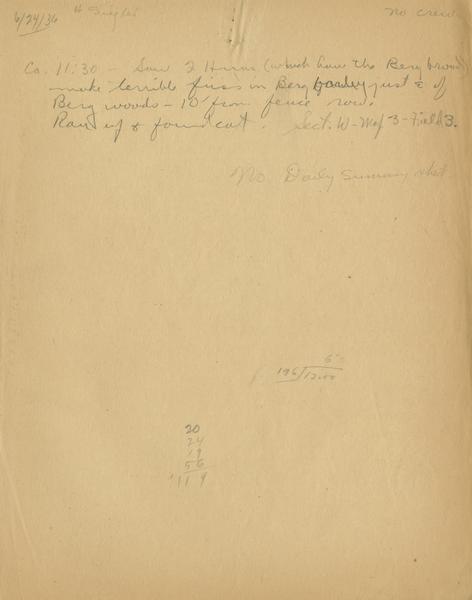 6/24/36 H Zieglis No crew
Ca. 11:30 - Saw 2 Hens (which have the Berg brood)
make terrible fuss in Berg barley just E of
Berg woods - 10' from fence row.
Ran up & found cat. Sect. W - Map 3 - Field 3.
No Daily Summary sheet
6
196/1200
20
24
19
56
119